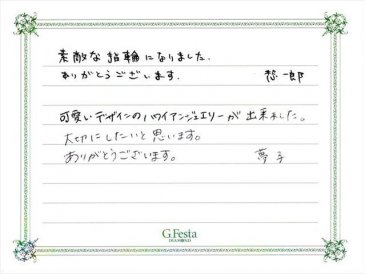 素敵な指輪になりました.
ありがとうございます.
悠一郎
可愛いデザインのハワイアンジュエリーが出来ました。
大切にしたいと思います。
ありがとうございます。
夢子
G.Festa
DIAMOND